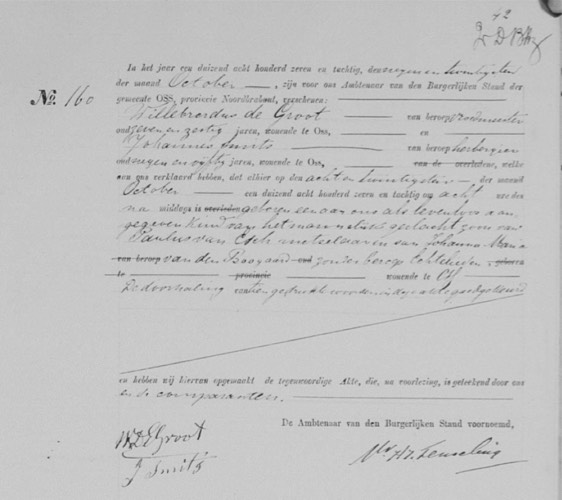 42
In het jaar een duizend acht honderd zeven en tachtig, den negen en twintigsten
der maand October, zijn voor ons Ambtenaar van den Burgerlijken Stand der
gemeente OSS, provincie Noordbrabant, verschenen:
No. 160
Willebrordus de Groot van beroep
oud zeven en zestig jaren, wonende te Oss, en
Johannes Smits van beroep herbergier
oud negen en vijftig jaren, wonende te Oss, van de overledene, welke
aan ons verklaard hebben, dat alhier op den acht en twintigsten der maand
October een duizend acht honderd zeven en tachtig om acht uur des
na middags is overleden geboren een aan ons als levenloos aan
gegeven kind van het mannelijk geslacht zoon van
Paulus van Esch metselaar en van Johanna Maria
van beroep van den Boogaard oud zonder beroep Echtelieden
te provincie wonende te
De doorhaling van tien gedrukte woorden in deze akte goedgekeurd
en hebben wij hiervan opgemaakt de tegenwoordige Akte, die, na voorlezing, is geteekend door ons
en de comparanten.
De Ambtenaar van den Burgerlijken Stand voornoemd,
W D Groot
J Smits